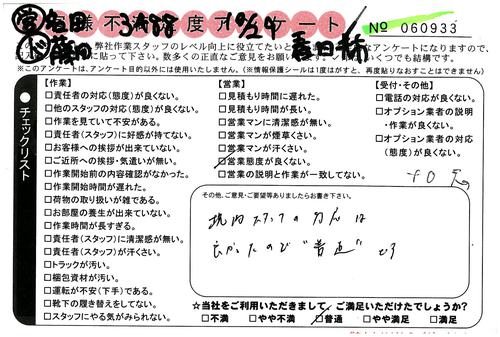 営 名田 3488 10/24
心 藤田
様不満度アンケート
春日井市
№ 060933
弊社作業スタッフのレベル向上に役立てたいと
なアンケートになりますので、
に貼って下さい。数多くの正直なご意見をお願い
いくつでも結構です。
※このアンケートは、アンケート目的以外には使用いたしません。(※情報保護シールは1度はがすと、再度貼りなおすことはできません)
チェックリスト
【作業】
□責任者の対応(態度)が良くない。
□他のスタッフの対応(態度)が良くない。
□作業を見ていて不安がある。
□責任者(スタッフ)に好感が持てない。
□お客様への挨拶が出来ていない。
□ご近所への挨拶・気遣いが無い。
□作業開始前の内容確認がなかった。
□作業開始時間が遅れた。
□荷物の取り扱いが雑である。
□お部屋の養生が出来ていない。
□作業時間が長すぎる。
□責任者(スタッフ)に清潔感が無い。
□責任者(スタッフ)が汗くさい。
□トラックが汚い。
□梱包資材が汚い。
□運転が不安(下手)である。
□靴下の履き替えをしてない。
□スタッフにやる気がみられない。
【営業】
□見積もり時間に遅れた。
□見積もり時間が長い。
□営業マンに清潔感が無い。
□営業マンが煙草くさい。
□営業マンが汗くさい。
☑営業態度が良くない。
□営業の説明と作業が一致してない。
【受付・その他】
□電話の対応が良くない。
□オプション業者の説明
・作業が良くない。
□オプション業者の対応
(態度)が良くない。
-10点
その他、ご意見・ご要望等ありましたらお書き下さい。
搬内スタッフの方々は
良かったので "普通" です
☆当社をご利用いただきまして、ご満足いただけたでしょうか?
□不満 □やや不満 ☑普通 □やや満足 □満足